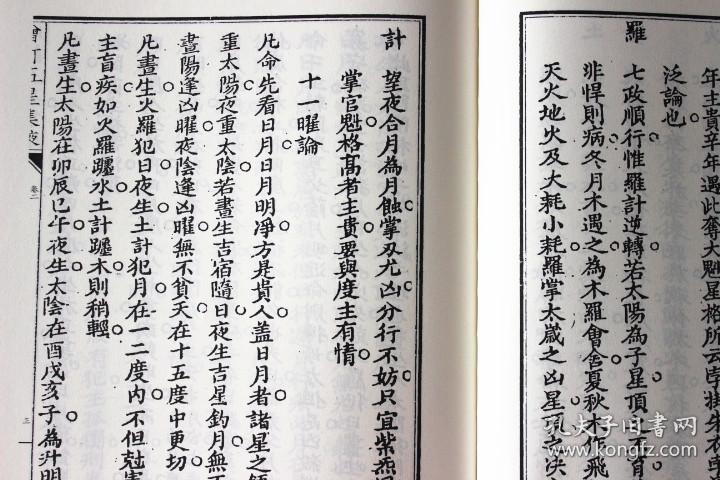 年主貴羊年遇此奪大魁星格所云
泛論也
羅
七政順行惟羅計逆轉若太陽為子星頂
非悍則病冬月木遇之為木羅會舍夏秋木作飛
天火地火及大耗小耗羅掌太歲之凶星項之決
計
望夜合月為月蝕掌刃尤凶分行不妨只宜紫炁
掌官魁格高者主貴要與度主有情
十一曜論
凡命先看日月日月明净方是貴人盖日月者諸星之
重太陽夜重太陰若晝生吉宿隨日夜生吉星鈎月無
晝陽逢凶曜夜陰逢凶曜無不貧夭在十五度中更切
凡晝生火羅犯日夜生土計犯月在一二度内不但尅害
主盲疾如火羅躔水土計躔木則稍輕
凡晝生太陽在卯辰巳午夜生太陰在酉戌亥子為升明
增訂五星集腋
卷二
三
孔夫子旧书网
kongfz.com